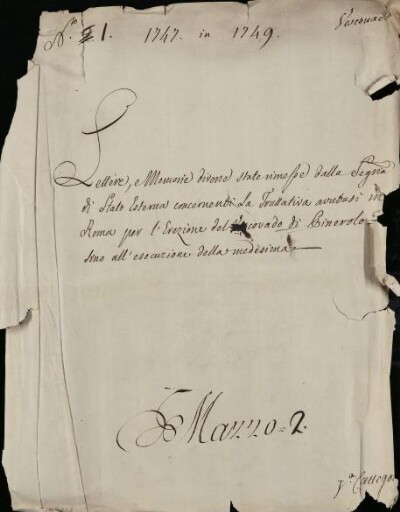 N.º 1. 1747. in 1749.
Vescovad
Lettere, e Memorie diverse state rimesse dalla Segria
di Stato Esterna concernenti La Trattativa avutasi in
Roma per l'Erezione del Vescovado di Pinerolo
sino all'esecuzione della medesima
Mazzo 2.
p.a Categor